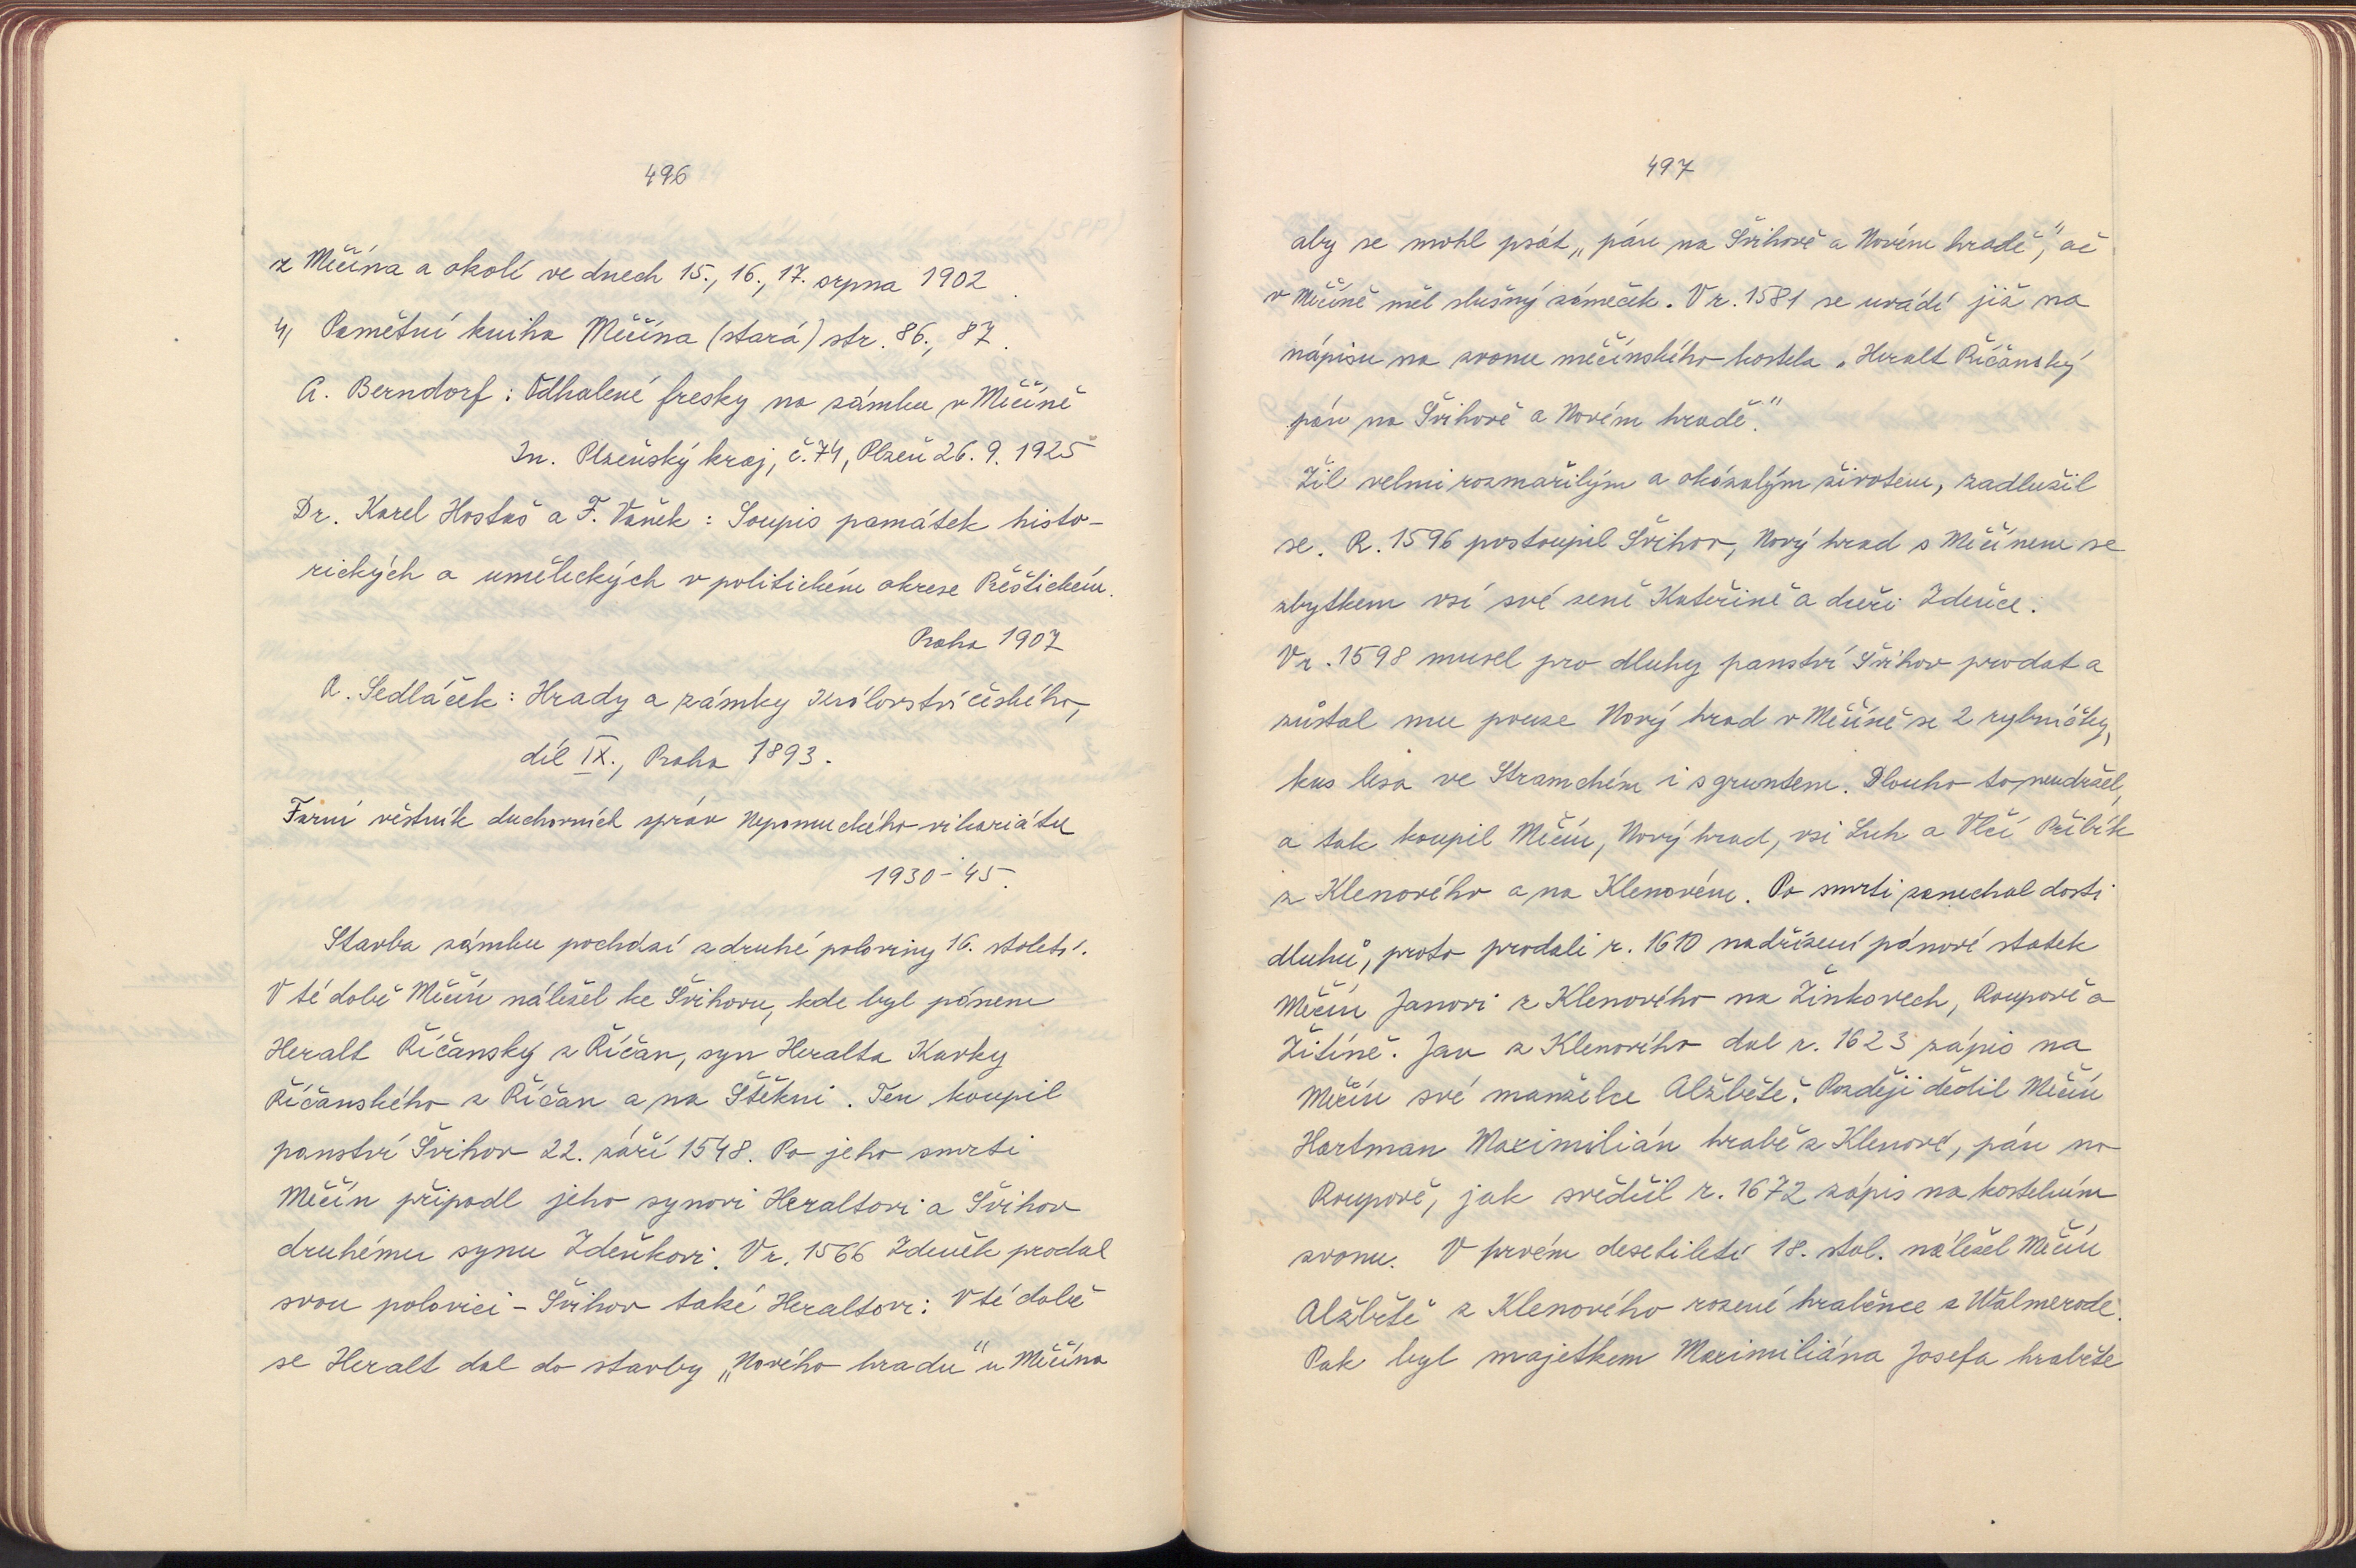 496
z Měčína a okolí ve dnech 15., 16., 17. srpna 1902.
4, Pamětní kniha Měčína (stará) str. 86., 87.
A. Berndorf: Odhalené fresky na zámku v Měčíně
In. Plzeňský kraj, č. 74, Plzeň 26. 9. 1925
Dr. Karel Hostaš a F. Vaněk: Soupis památek histo-
rických a uměleckých v politickém okrese Přeštickém.
Praha 1907
A. Sedláček: Hrady a zámky Království českého,
díl IX., Praha 1893.
Farní věstník duchovních správ Nepomuckého vikariátu
1930-45.
Stavba zámku pochází z druhé poloviny 16. století.
V té době Měčín náležel ke Švihovu, kde byl pánem
Heralt Říčanský z Říčan, syn Heralta Kavky
Říčanského z Říčan a na Štěkni. Ten koupil
panství Švihov 22. září 1548. Po jeho smrti
Měčín připadl jeho synovi Heraltovi a Švihov
druhému synu Zdeňkovi. V r. 1566 Zdeněk prodal
svou polovici - Švihov také Heraltovi. V té době
se Heralt dal do stavby „Nového hradu" u Měčína
497
aby se mohl psát „pán na Švihově a Novém hradě", ač
v Měčíně měl slušný zámeček. V r. 1581 se uvádí již na
nápisu na zvonu měčínského kostela „Heralt Říčanský
pán na Švihově a Novém hradě."
Žil velmi rozmařilým a okázalým životem, zadlužil
se. R. 1596 postoupil Švihov, Nový hrad s Měčínem se
zbytkem vsí své ženě Kateřině a dceři Zdeňce.
V r. 1598 musel pro dluhy panství Švihov prodat a
zůstal mu pouze Nový hrad v Měčíně se 2 rybníčky,
kus lesa ve Stramchém i s gruntem. Dlouho to neudržel,
a tak koupil Měčín, Nový hrad, vsi Luh a Vlčí Přibík
z Klenového a na Klenovém. Po smrti zanechal dosti
dluhů, proto prodali r. 1610 nadřízení pánové statek
Měčín Janovi z Klenového na Žinkovech, Roupově a
Žitíně. Jan z Klenového dal r. 1623 zápis na
Měčín své manželce Alžbětě. Později dědil Měčín
Hartman Maximilián hrabě z Klenové, pán na
Roupově, jak svědčil r. 1672 zápis na kostelním
zvonu. V prvém desetiletí 18. stol. náležel Měčín
Alžbětě z Klenového rozené hraběnce z Walmerode.
Pak byl majetkem Maximiliána Josefa hraběte